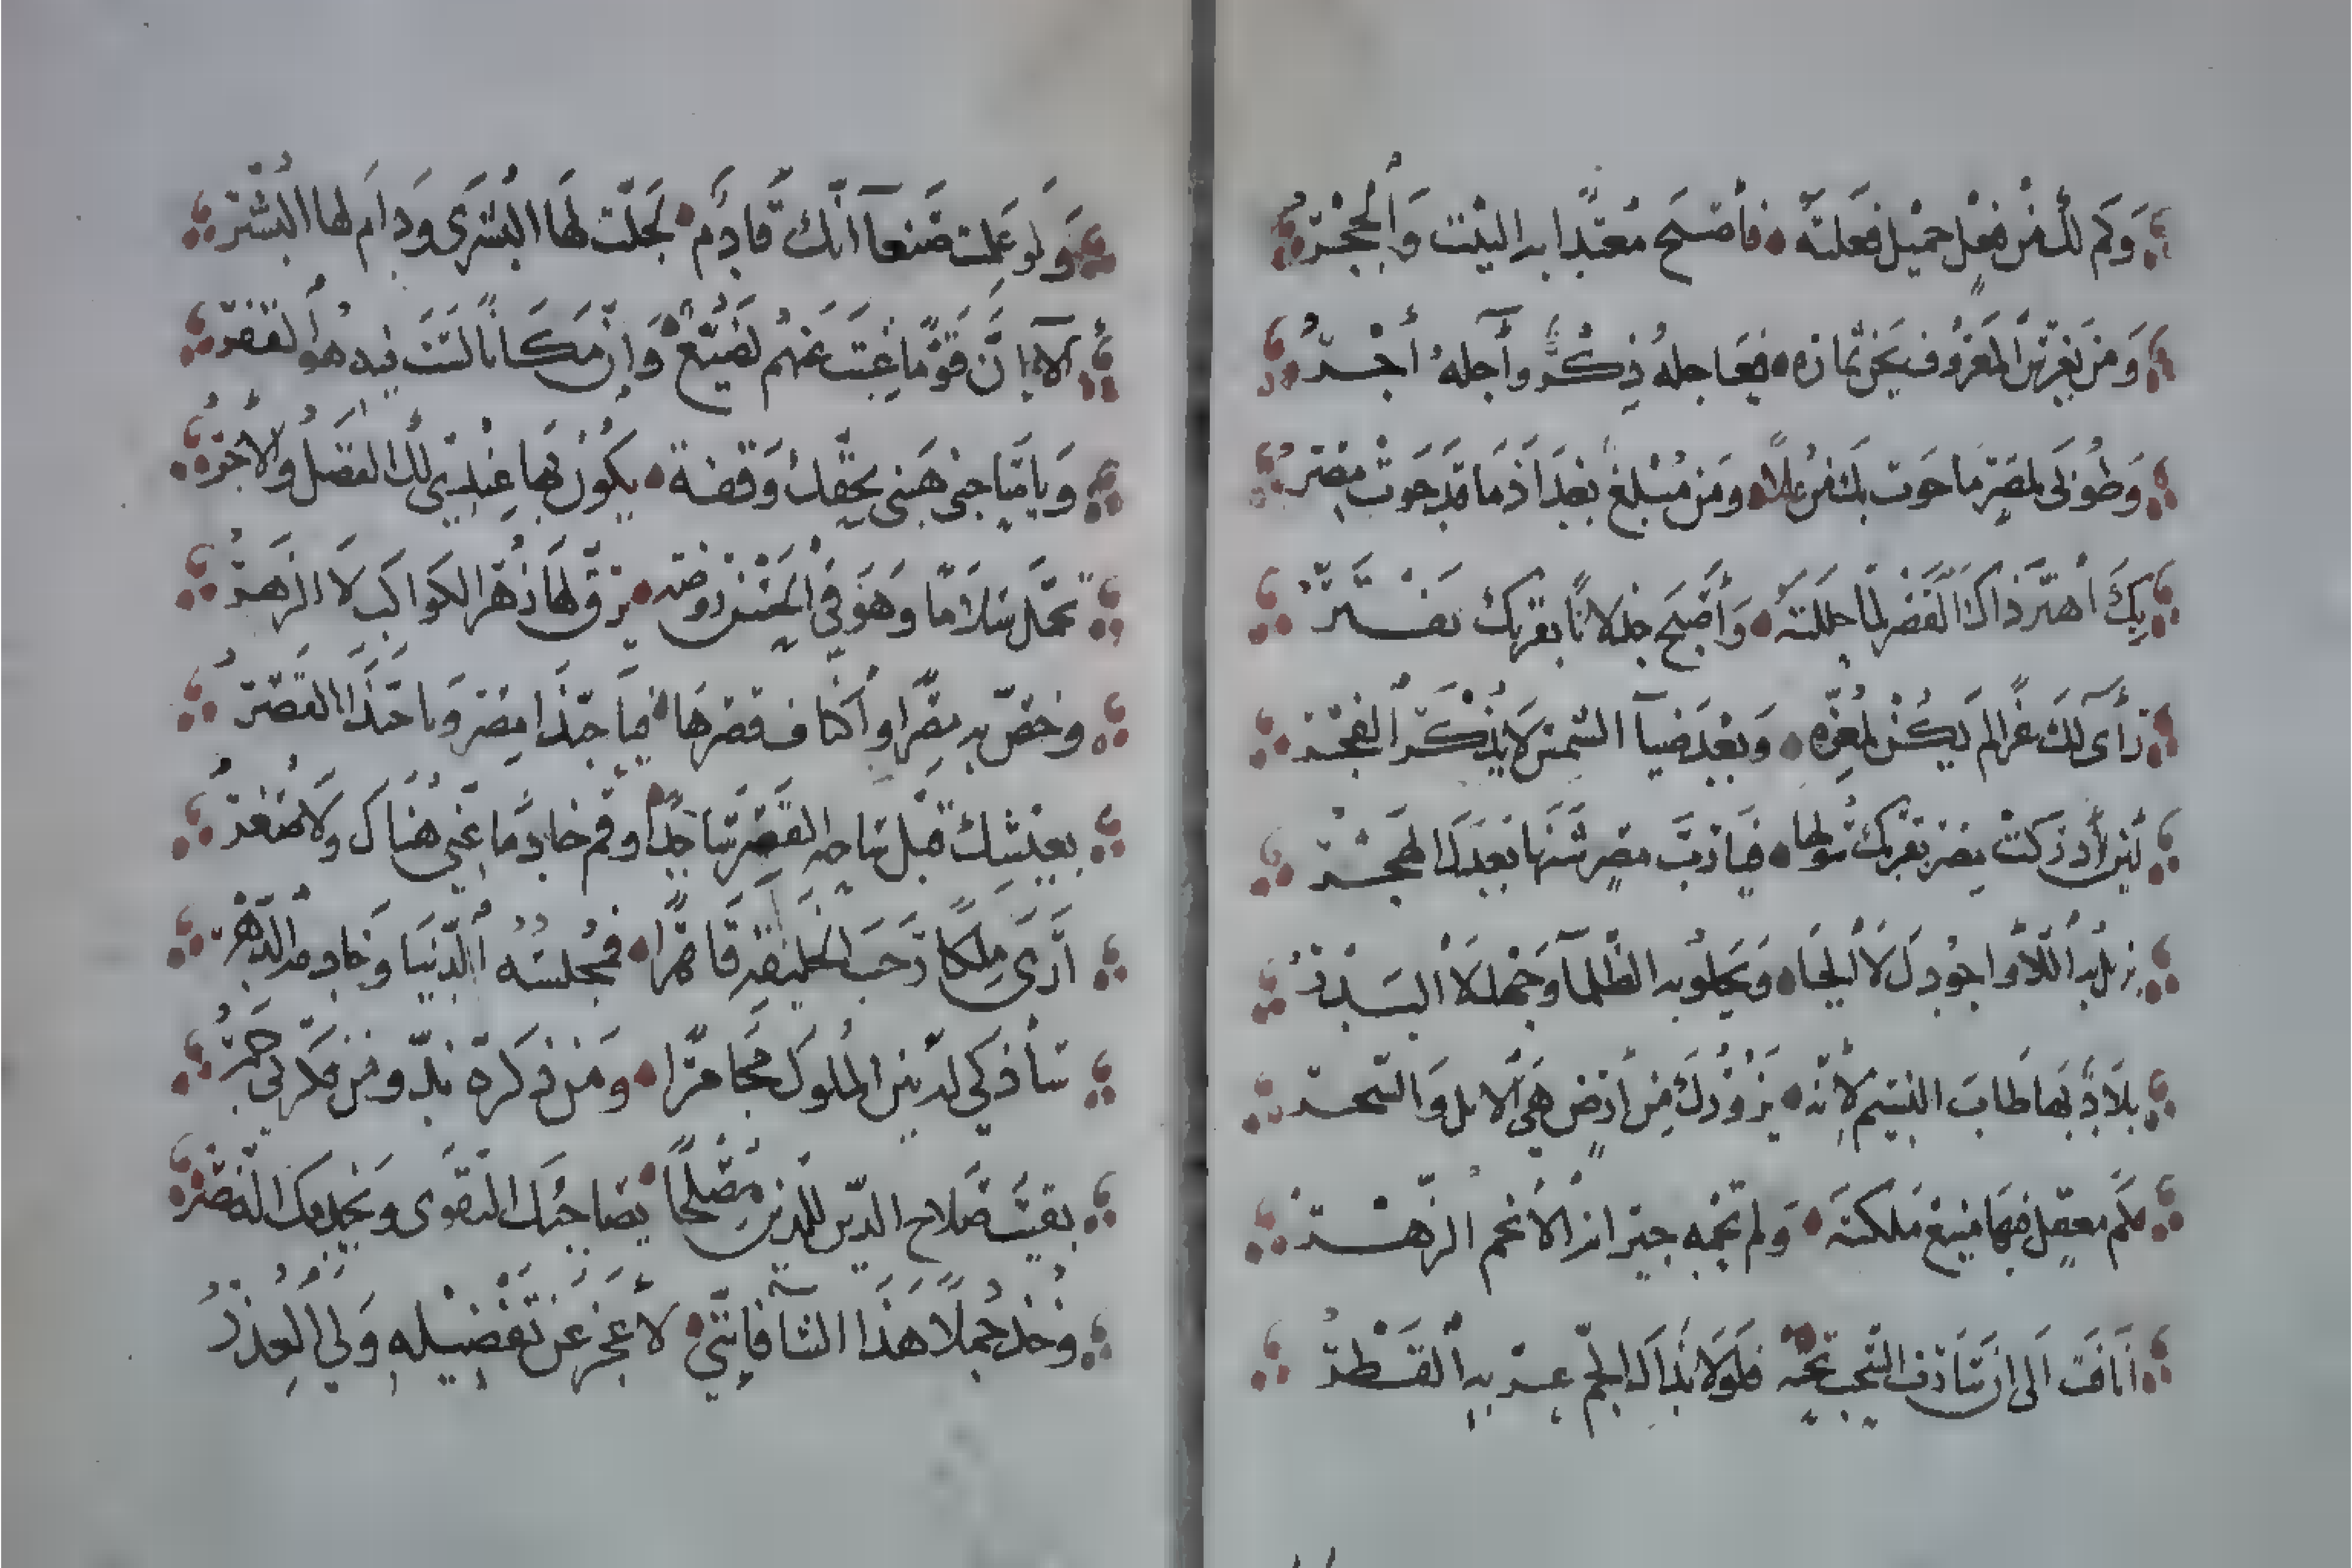 وَكَم لك مِن فِعْلٍ جميْلٍ فَعَلتَهُ فأصْبَحَ مُعتَدًّا به البيْت وَالحِجْرُ
وَمَن يَغْرِسِ المَعْرُوف يَجنِ ثمارَه فعَاجلهُ ذِكْرٌ وآجلهُ أجْرُ
وَطُوبَى لمصْرٍ ما حَوت بك مِن عُلًا ومَن مُبْلغٌ بغدَاذَ مَا قد حَوَتْ مِصْرُ
بِكَ اهتَزَّ ذاك القَصْر لما حللتَهُ وَأصْبَحَ جذلانًا بقربِك يَفْتَرُّ
رَأى لكَ عِزًّا لم يَكُنْ لمُعِزِّه وَبعْدَ ضيآ الشمْس لا يُذْكَر الفَجْرُ
لئن أدركتْ مصْر بقربك سُولها فيا رُبَّ مصرٍ شفَّها بعدَك الهجْرُ
يزيْلُ به اللأوا جُودكَ لا الحَيا وَيجلُو به الظلمآ وَجْهكَ لا البَدْرُ
بلادٌ بهَا طَابَ النسِيْم لأنه يَزُورُك مِن أرْضٍ هي الأهل وَالسّحْرُ
وَكم معقلٍ فيها منيعٍ ملكتَه وَلم تحمِه جيرانه الأنجم الزُّهْرُ
أنافَ إلى أن سارت السُّحب تحتَه فلَولا نداك الجم عز به القَطْرُ
وَلو عَلِمت صَنعآ أنّك قَادِم لَحَلّت لهَا البُشرَى ودامَ لها البِشْرُ
ألا إنّ قَوْمًا غِبْتَ عَنهُم لضُيَّعٌ وَإنّ مَكَانًا لسْتَ فيه هو القفْرُ
وَيا صَاحبي هَبني بحَقّك وَقفة يكُون بهَا عِنْدِي لك الفَضْلُ والأجْرُ
تحمّل سَلامًا وَهوَ في الحُسْن روضَة تزفّ لها زُهْرُ الكوَاكب لا الزهْرُ
وخُصّ به مصْرًا وأكناف قصْرهَا فيَا حبّذَا مصْر وَيا حَبَّذَا القَصْرُ
بعيْشك قبّل ساحة القَصْر سَاجدًا وقم خادِمًا عَنّي هنَاك ولا صُغْرُ
أرَى مَلكًا رَحبَ الخَليقَةِ قَاهرًا فمجْلسُه الدّنيَا وخَادِمُه الدَّهْرُ
سَأُذْكي لهُ بيْن المُلوكِ مجَامرًا ومَن ذكره نِدٌّ ومِن فِكري جَمْرُ
بقيْتَ صَلاحَ الدّين للدين مُصْلحًا تصَاحبُك التقوَى وَيخدِمك النَّصْرُ
وخُذْ جُملًا هذَا الثنآ فإنَّني لأعجَز عَن تفْصِيْلهِ وَلي العُذْرُ